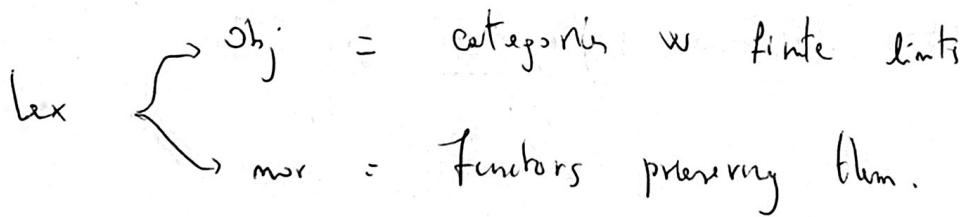 Obj = categories w finite limits
Lex
mor = functors preserving them.